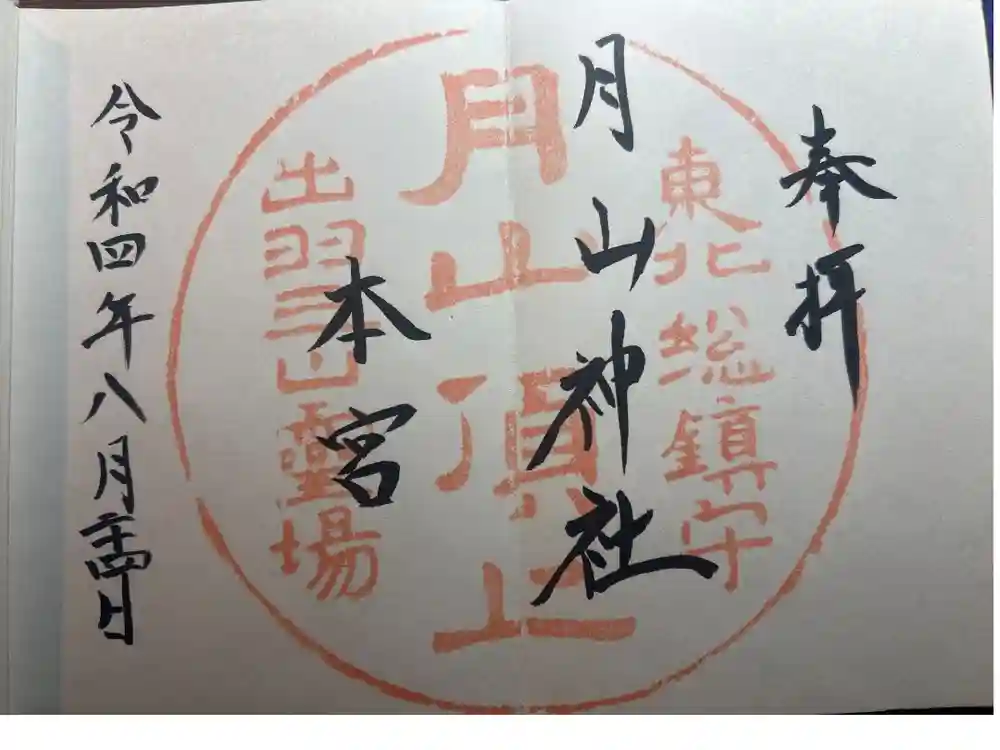 奉拝
東北総鎮守
月山神社
月山頂上
本宮
出羽三山靈場
令和四年八月二十四日